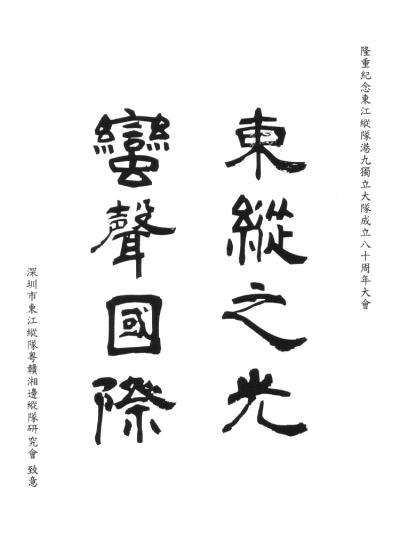 隆重紀念東江縱隊港九獨立大隊成立八十周年大會
東縱之光
蠻聲國際
深圳市東江縱隊粵贛湘邊縱隊研究會 致意